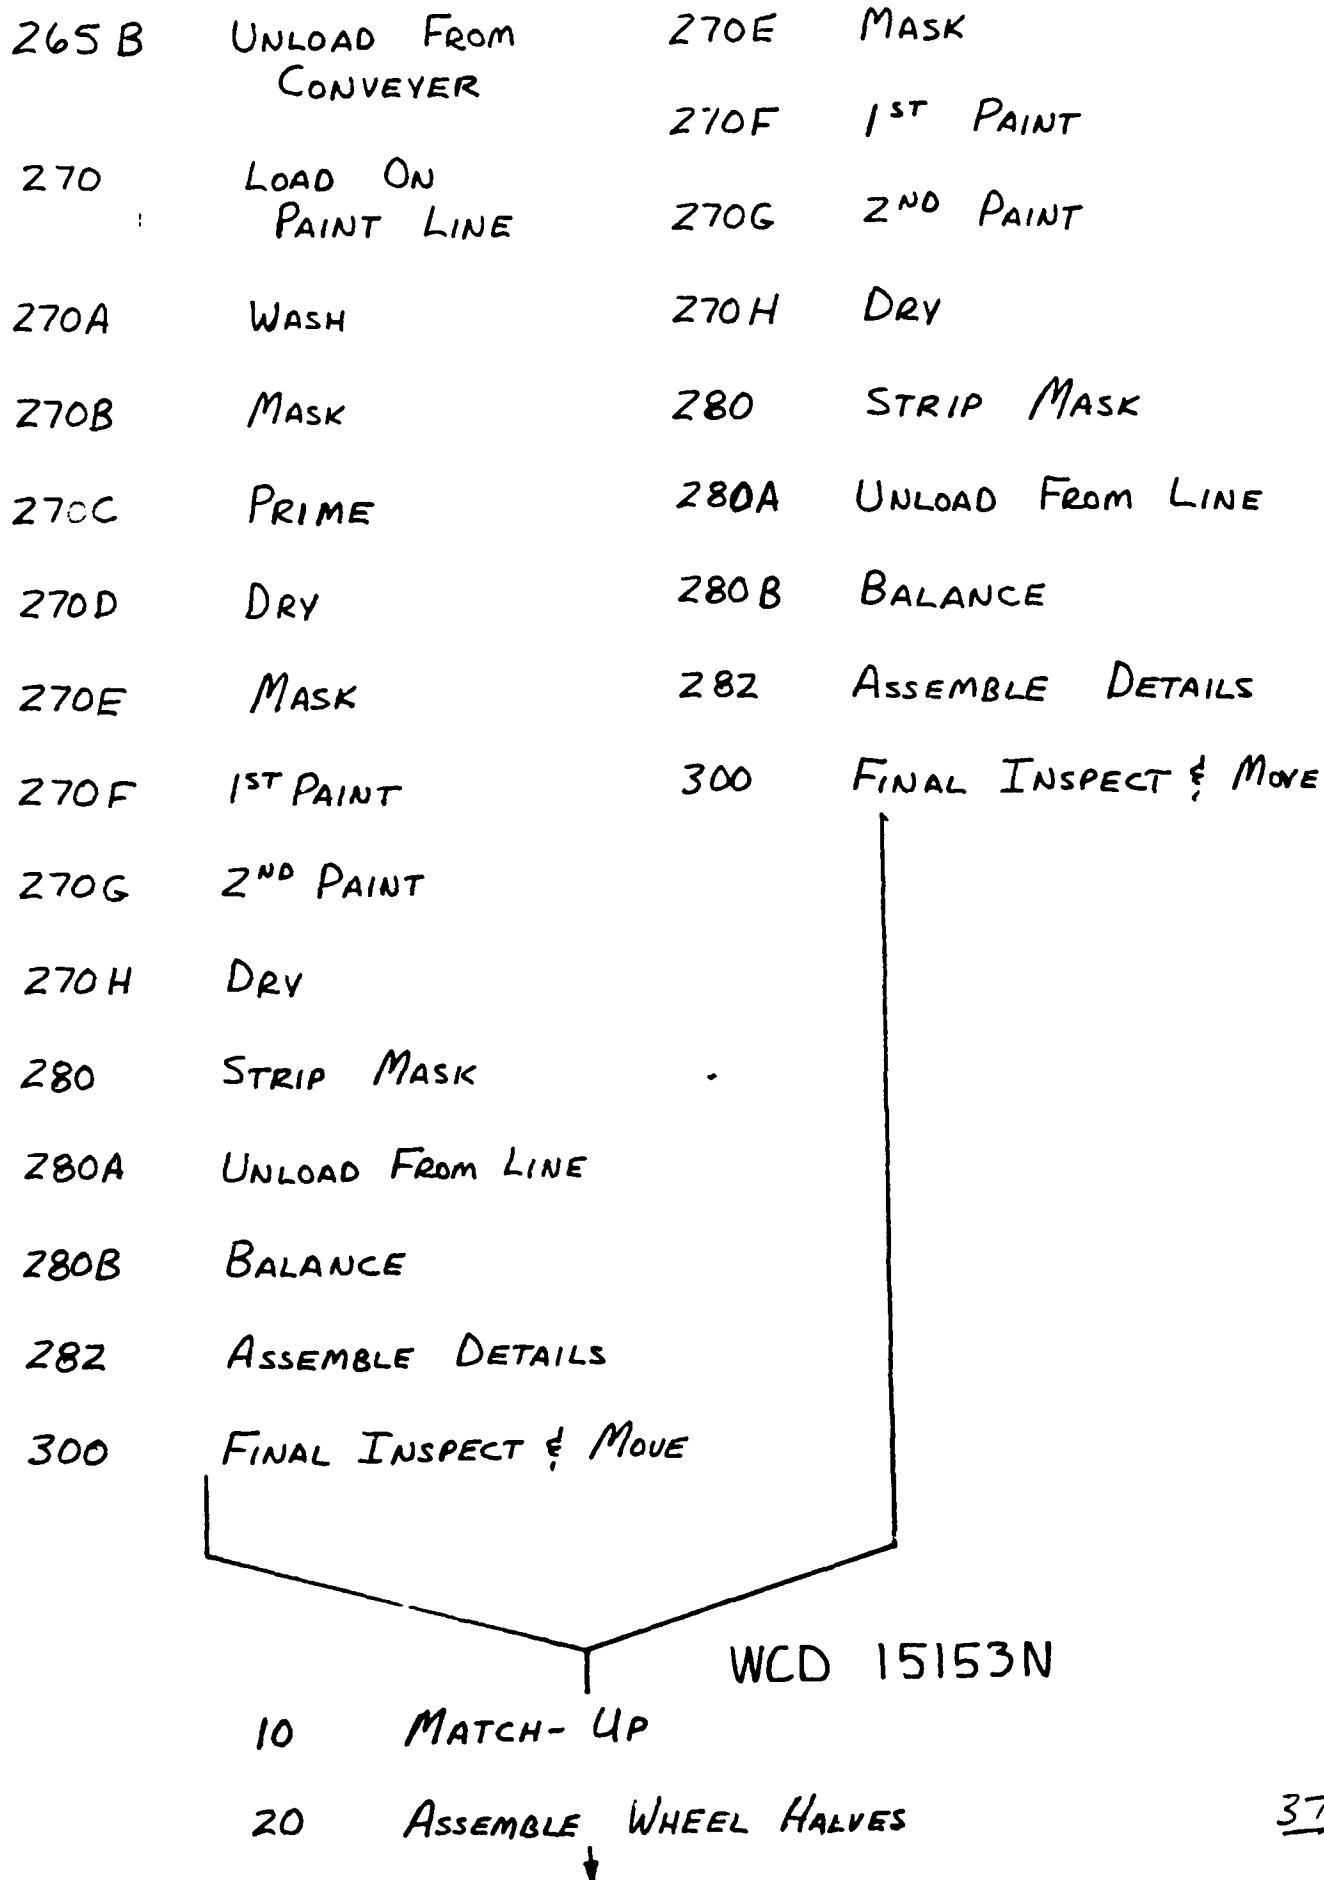 265B UNLOAD FROM
CONVEYER
270 LOAD ON
PAINT LINE
270A WASH
270B MASK
270C PRIME
270D DRY
270E MASK
270F 1ST PAINT
270G 2ND PAINT
270H DRY
280 STRIP MASK
280A UNLOAD FROM LINE
280B BALANCE
282 ASSEMBLE DETAILS
300 FINAL INSPECT & MOVE
270E MASK
270F 1ST PAINT
270G 2ND PAINT
270H DRY
280 STRIP MASK
280A UNLOAD FROM LINE
280B BALANCE
282 ASSEMBLE DETAILS
300 FINAL INSPECT & MOVE
WCD 15153N
10 MATCH-UP
20 ASSEMBLE WHEEL HALVES
37